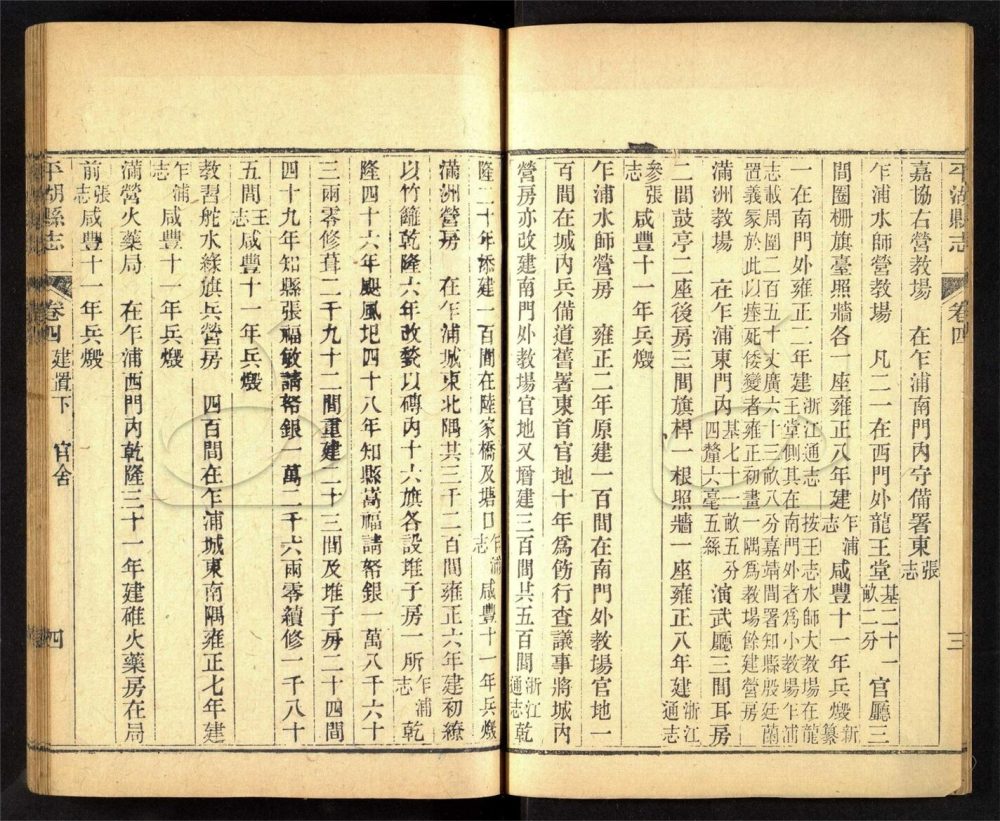 平湖縣志 卷四 三
嘉協右營教場 在乍浦南門內守備署東張志
乍浦水師營教場 凡二一在西門外龍王堂基二十一畝二分官廳三
間圈棚旗臺照牆各一座雍正八年建乍浦志咸豐十一年兵燬新纂
一在南門外雍正二年建浙江通志 按王志水師大教場在龍王堂側其在南門外者爲小教場乍浦
志載周圍二百五十丈廣六十三畝八分嘉靖間署知縣殷廷蘭置義冢於此以瘞死倭變者雍正初畫一隅爲教場餘建營房
滿洲教場 在乍浦東門內基七十一畝五分四釐六毫五絲演武廳三間耳房
二間鼓亭二座後房三間旗桿一根照牆一座雍正八年建浙江通志
參張志咸豐十一年兵燬
乍浦水師營房 雍正二年原建一百間在南門外教場官地一
百間在城內兵備道舊署東首官地十年爲飭行查議事將城內
營房亦改建南門外教場官地又增建三百間共五百間浙江通志乾
隆二十年添建一百間在陸家橋及塘口乍浦志咸豐十一年兵燬
滿洲營房 在乍浦城東北隅共三千二百間雍正六年建初繚
以竹籬乾隆六年改甃以磚內十六旗各設堆子房一所乍浦志乾
隆四十六年颶風圮四十八年知縣嵩福請帑銀一萬八千六十
三兩零修葺二千九十二間重建二十三間及堆子房二十四間
四十九年知縣張福敏請帑銀一萬二千六兩零續修一千八十
五間王志咸豐十一年兵燬
教習舵水綠旗兵營房 四百間在乍浦城東南隅雍正七年建
乍浦志咸豐十一年兵燬
滿營火藥局 在乍浦西門內乾隆三十一年建碓火藥房在局
前張志咸豐十一年兵燬
平湖縣志 卷四 建置下 官舍 四